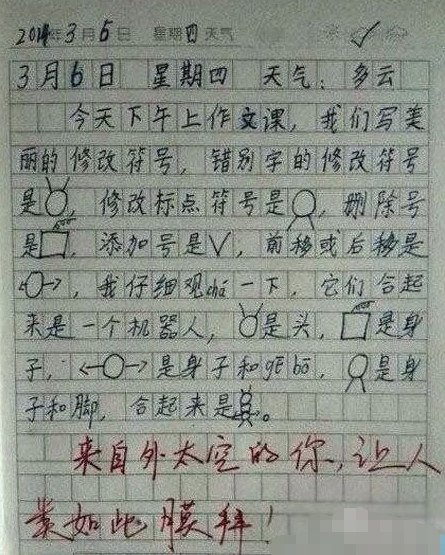 2014年3月6日 星期四 天气
3月6日 星期四 天气：多云
今天下午上作文课，我们写美
丽的修改符号，错别字的修改符号
是，修改标点符号是，删除号
是，添加号是，前移或后移是
，我仔细观chá一下，它们合起
来是一个机器人，是头，是身
子，是身子和gē bō，是身
子和脚，合起来是。
来自外太空的你，让人
类如此膜拜！